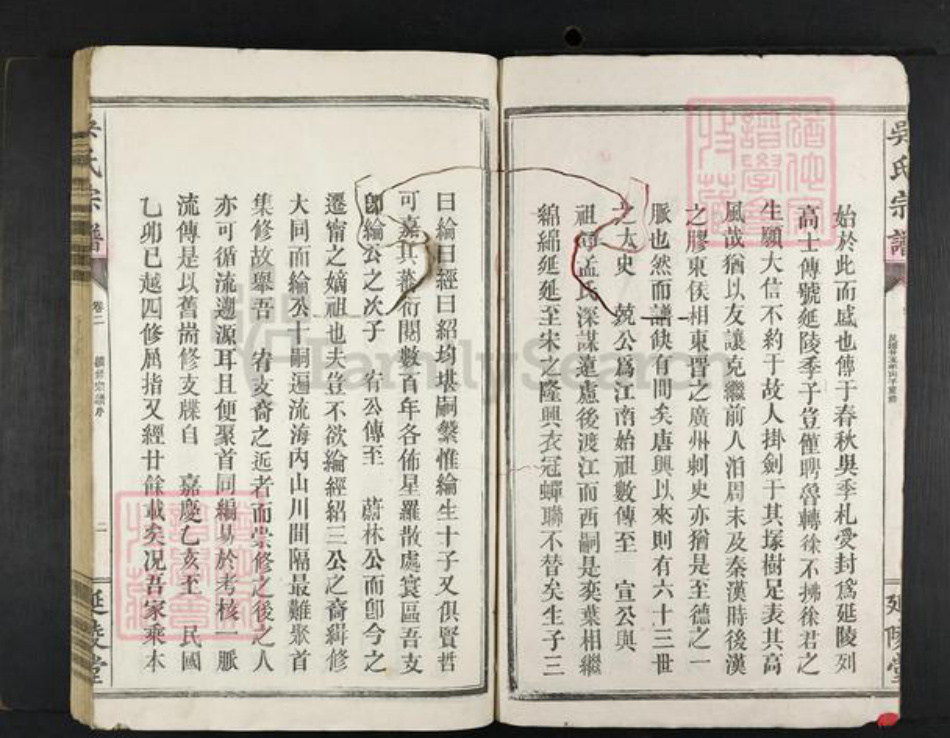 吳氏宗譜
民國廿五年丙子重修
延陵堂
始於此而盛也傳于春秋吳季札受封爲延陵列
高士傳號延陵季子豈僅聘魯轉徐不拂徐君之
生願大信不約于故人掛劍于其塚樹足表其高
風哉猶以友讓克繼前人洎周末及秦漢時後漢
之膠東侯相東晋之廣州刺史亦猶是至德之一
脈也然而譜缺有間矣唐興以來則有六十三世
之太史 兢公爲江南始祖數傳至 宣公與
祖同孟氏深謀遠慮後渡江而西嗣是奕葉相繼
綿綿延延至宋之隆興衣冠蟬聯不替矣生子三
曰綸曰經曰紹均堪嗣繫惟綸生十子又俱賢哲
可嘉其蕃衍閱數百年各佈星羅散處寰區吾支
卽綸公之次子 宥公傳至 蔚林公而卽今之
遷甯之嫡祖也夫豈不欲綸經紹三公之裔緝修
大同而綸公十嗣遍流海內山川間隔最難聚首
集修故舉吾 宥支裔之近者而嘗修之後之人
亦可循流遡源耳且便聚首同編易於考核一脈
流傳是以舊尚修支牒自 嘉慶乙亥至 民國
乙卯已越四修屈指又經廿餘載矣况吾家乘本
吳氏宗譜
卷二
續修宗譜序
二
延陵堂
FamilySearch